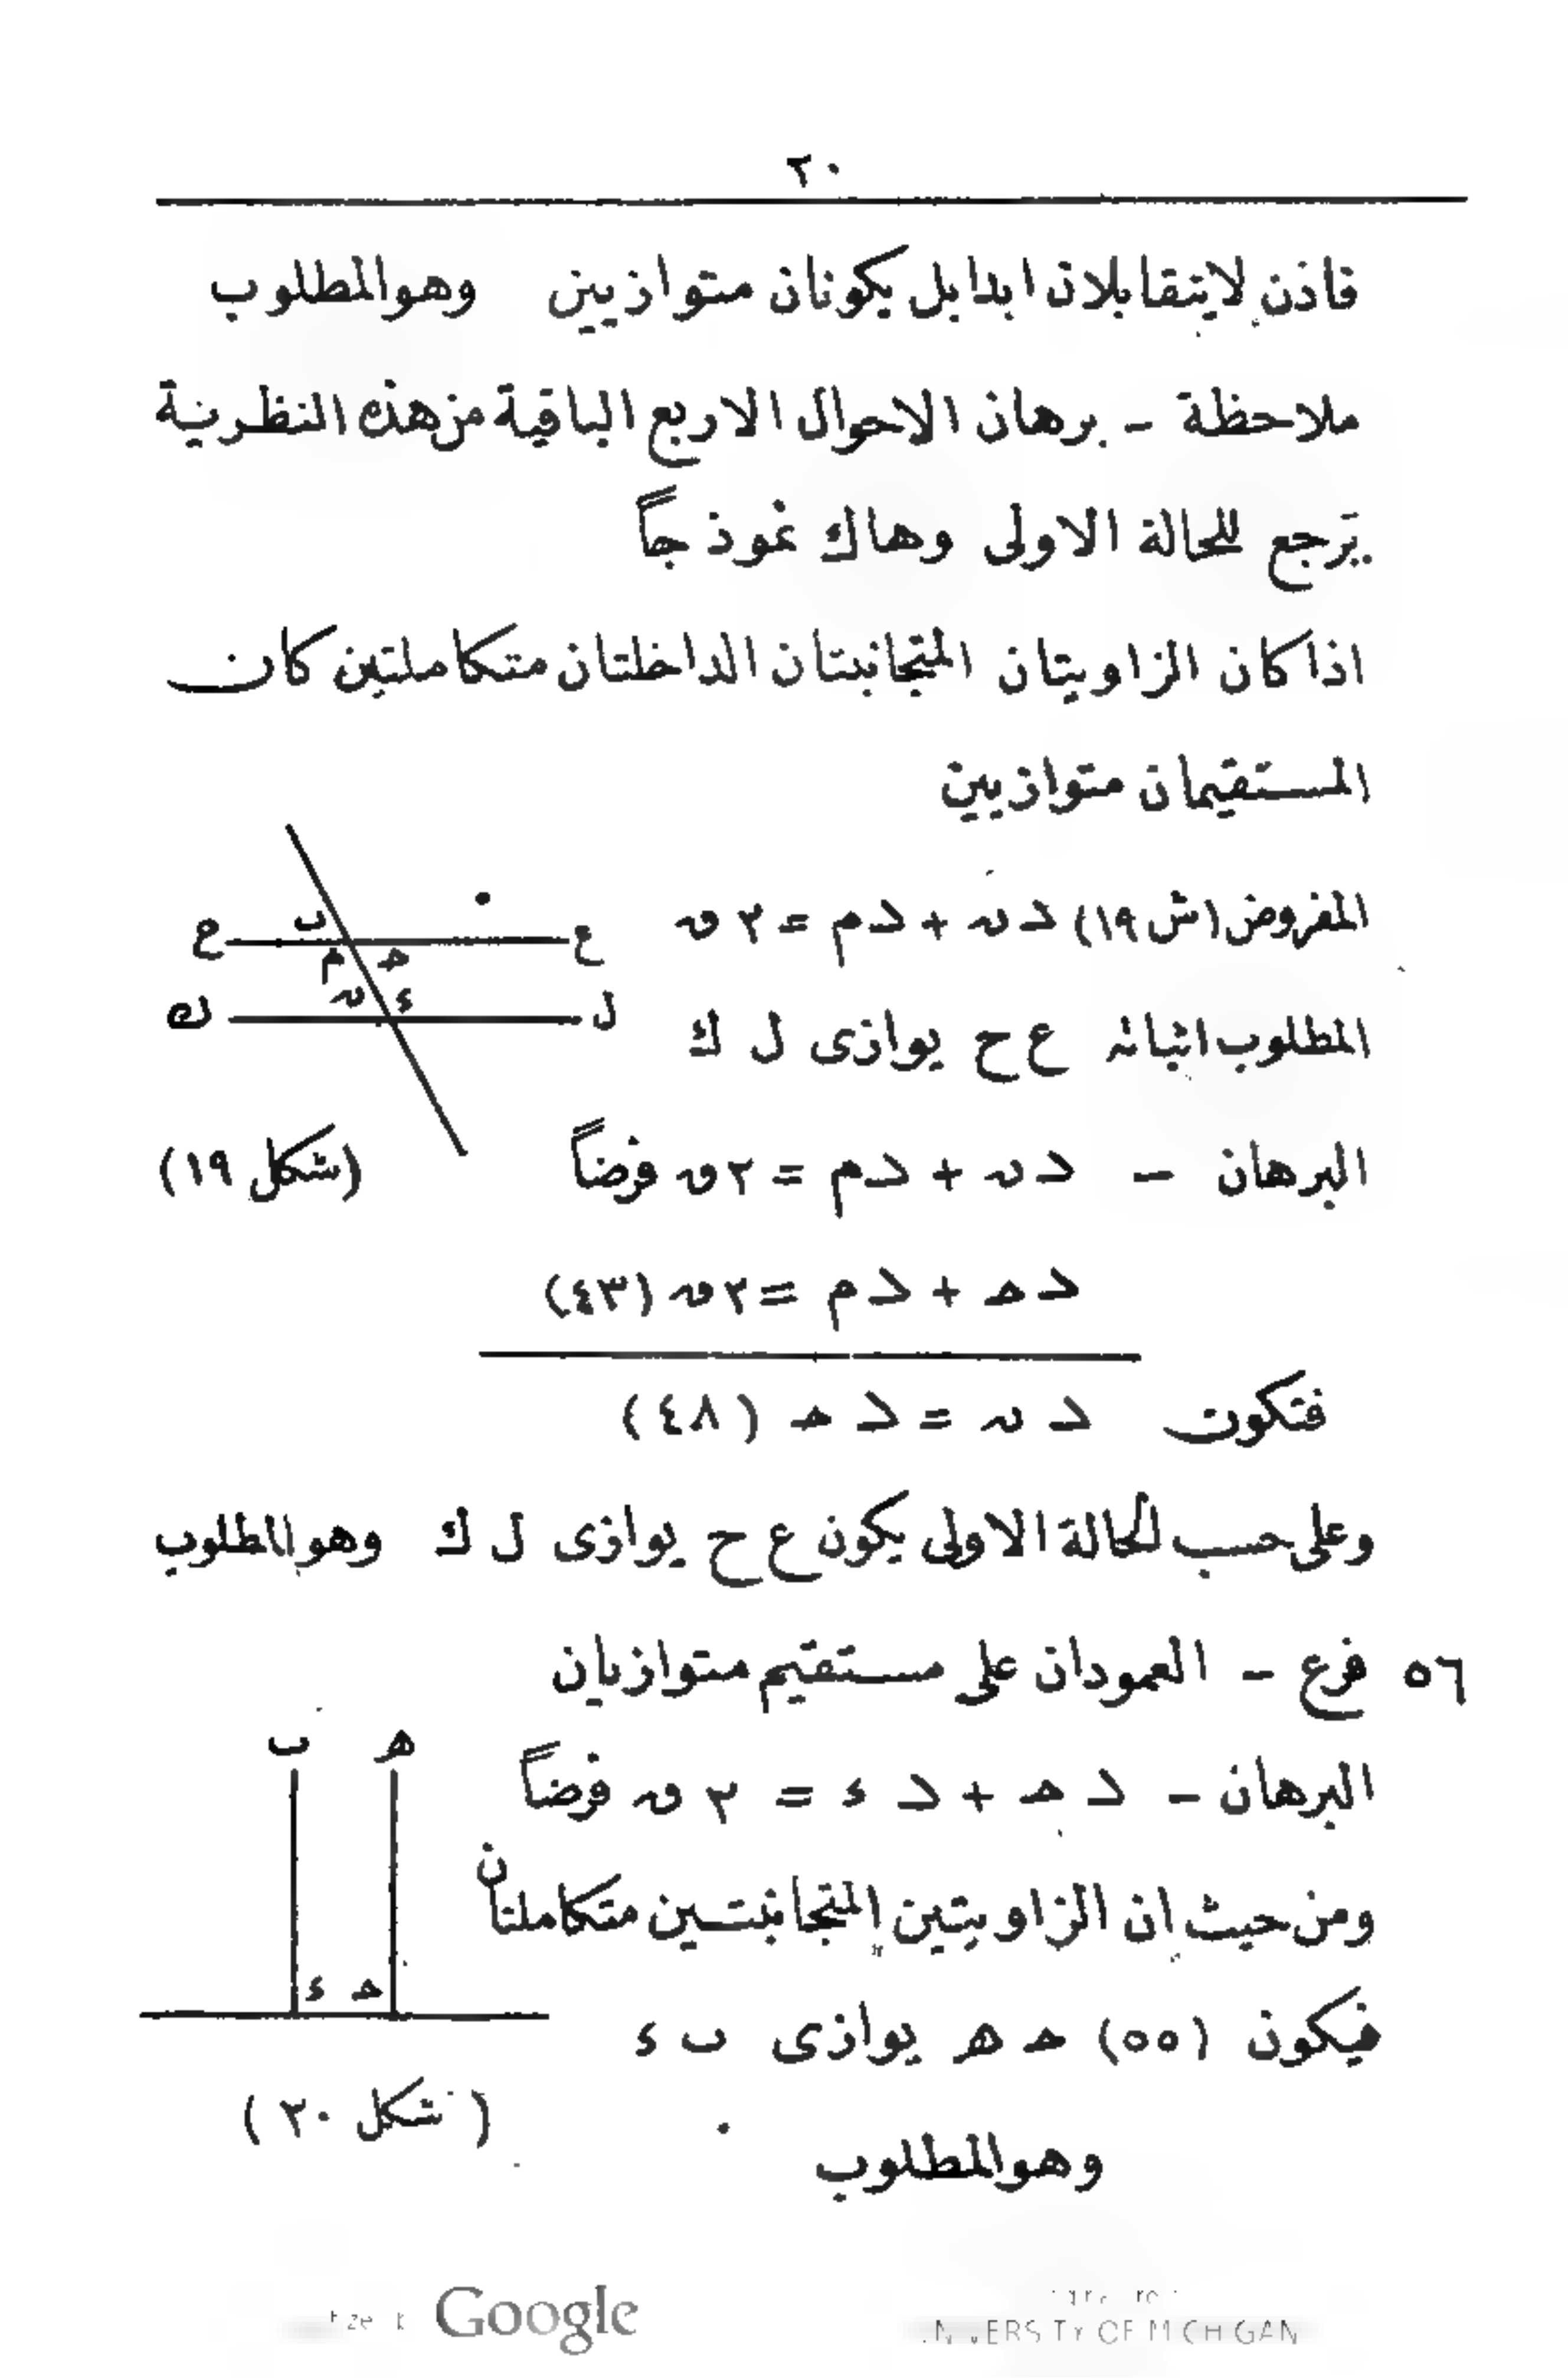 ٢٠
فاذن لايتقابلان ابدا بل يكونان متوازيين وهو المطلوب
ملاحظة - برهان الاحوال الاربع الباقية من هذه النظرية
يَرجع للحالة الاولى وهاك نموذجاً
اذا كان الزاويتان المتجانبتان الداخلتان متكاملتين كان
المستقيمان متوازيين
المفروض (ش ١٩) د ن + د م = ٢ ق
المطلوب اثباته ع ح يوازى ل ك
ع ح
ب
م ح
ن ء
ل ك
البرهان - د ن + د م = ٢ ق فرضاً
(شكل ١٩)
د ح + د م = ٢ ق (٤٣)
فتكون د ن = د ح (٤٨)
وعلى حسب الحالة الاولى يكون ع ح يوازى ل ك وهو المطلوب
٥٦ فرع - العمودان على مستقيم متوازيان
البرهان - د ح + د ء = ٢ ق فرضاً
ومن حيث ان الزاويتين المتجانبتين متكاملتان
فيكون (٥٥) ح ه يوازى ب ء
ه ب
ح ء
(شكل ٢٠)
وهو المطلوب
Google
UNIVERSITY OF MICHIGAN